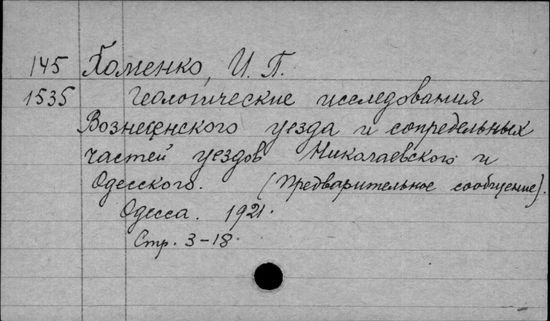 145 Хоменко, И. П.
1535 Геологические исследования
Вознесенского уезда и сопредельных
частей уездов Николаевского и
Одесского. (Предварительное сообщение).
Одесса. 1921.
Стр. 3-18.